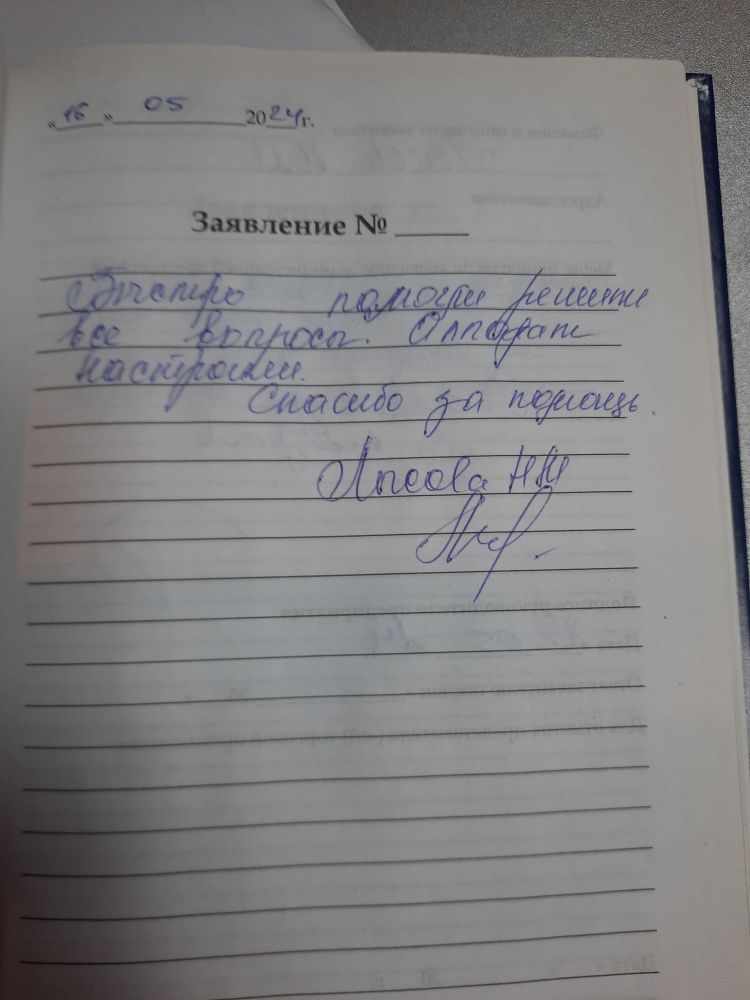 «16» 05 2024 г.
Заявление №
Быстро помогли решить
все вопросы. Аппарат
настроили.
Спасибо за помощь.
Лысова НМ